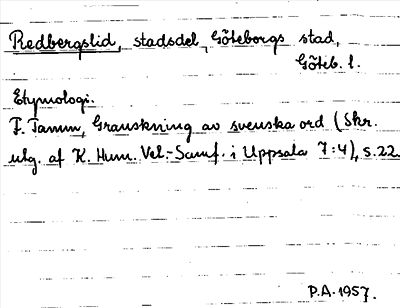 Redbergslid, stadsdel, Göteborgs stad,
Göteb. l.
Etymologi.
F. Tamm, Granskning av svenska ord (Skr.
utg. af K. Hum. Vet.-Samf. i Uppsala 7:4), s. 22.
P.A. 1957.